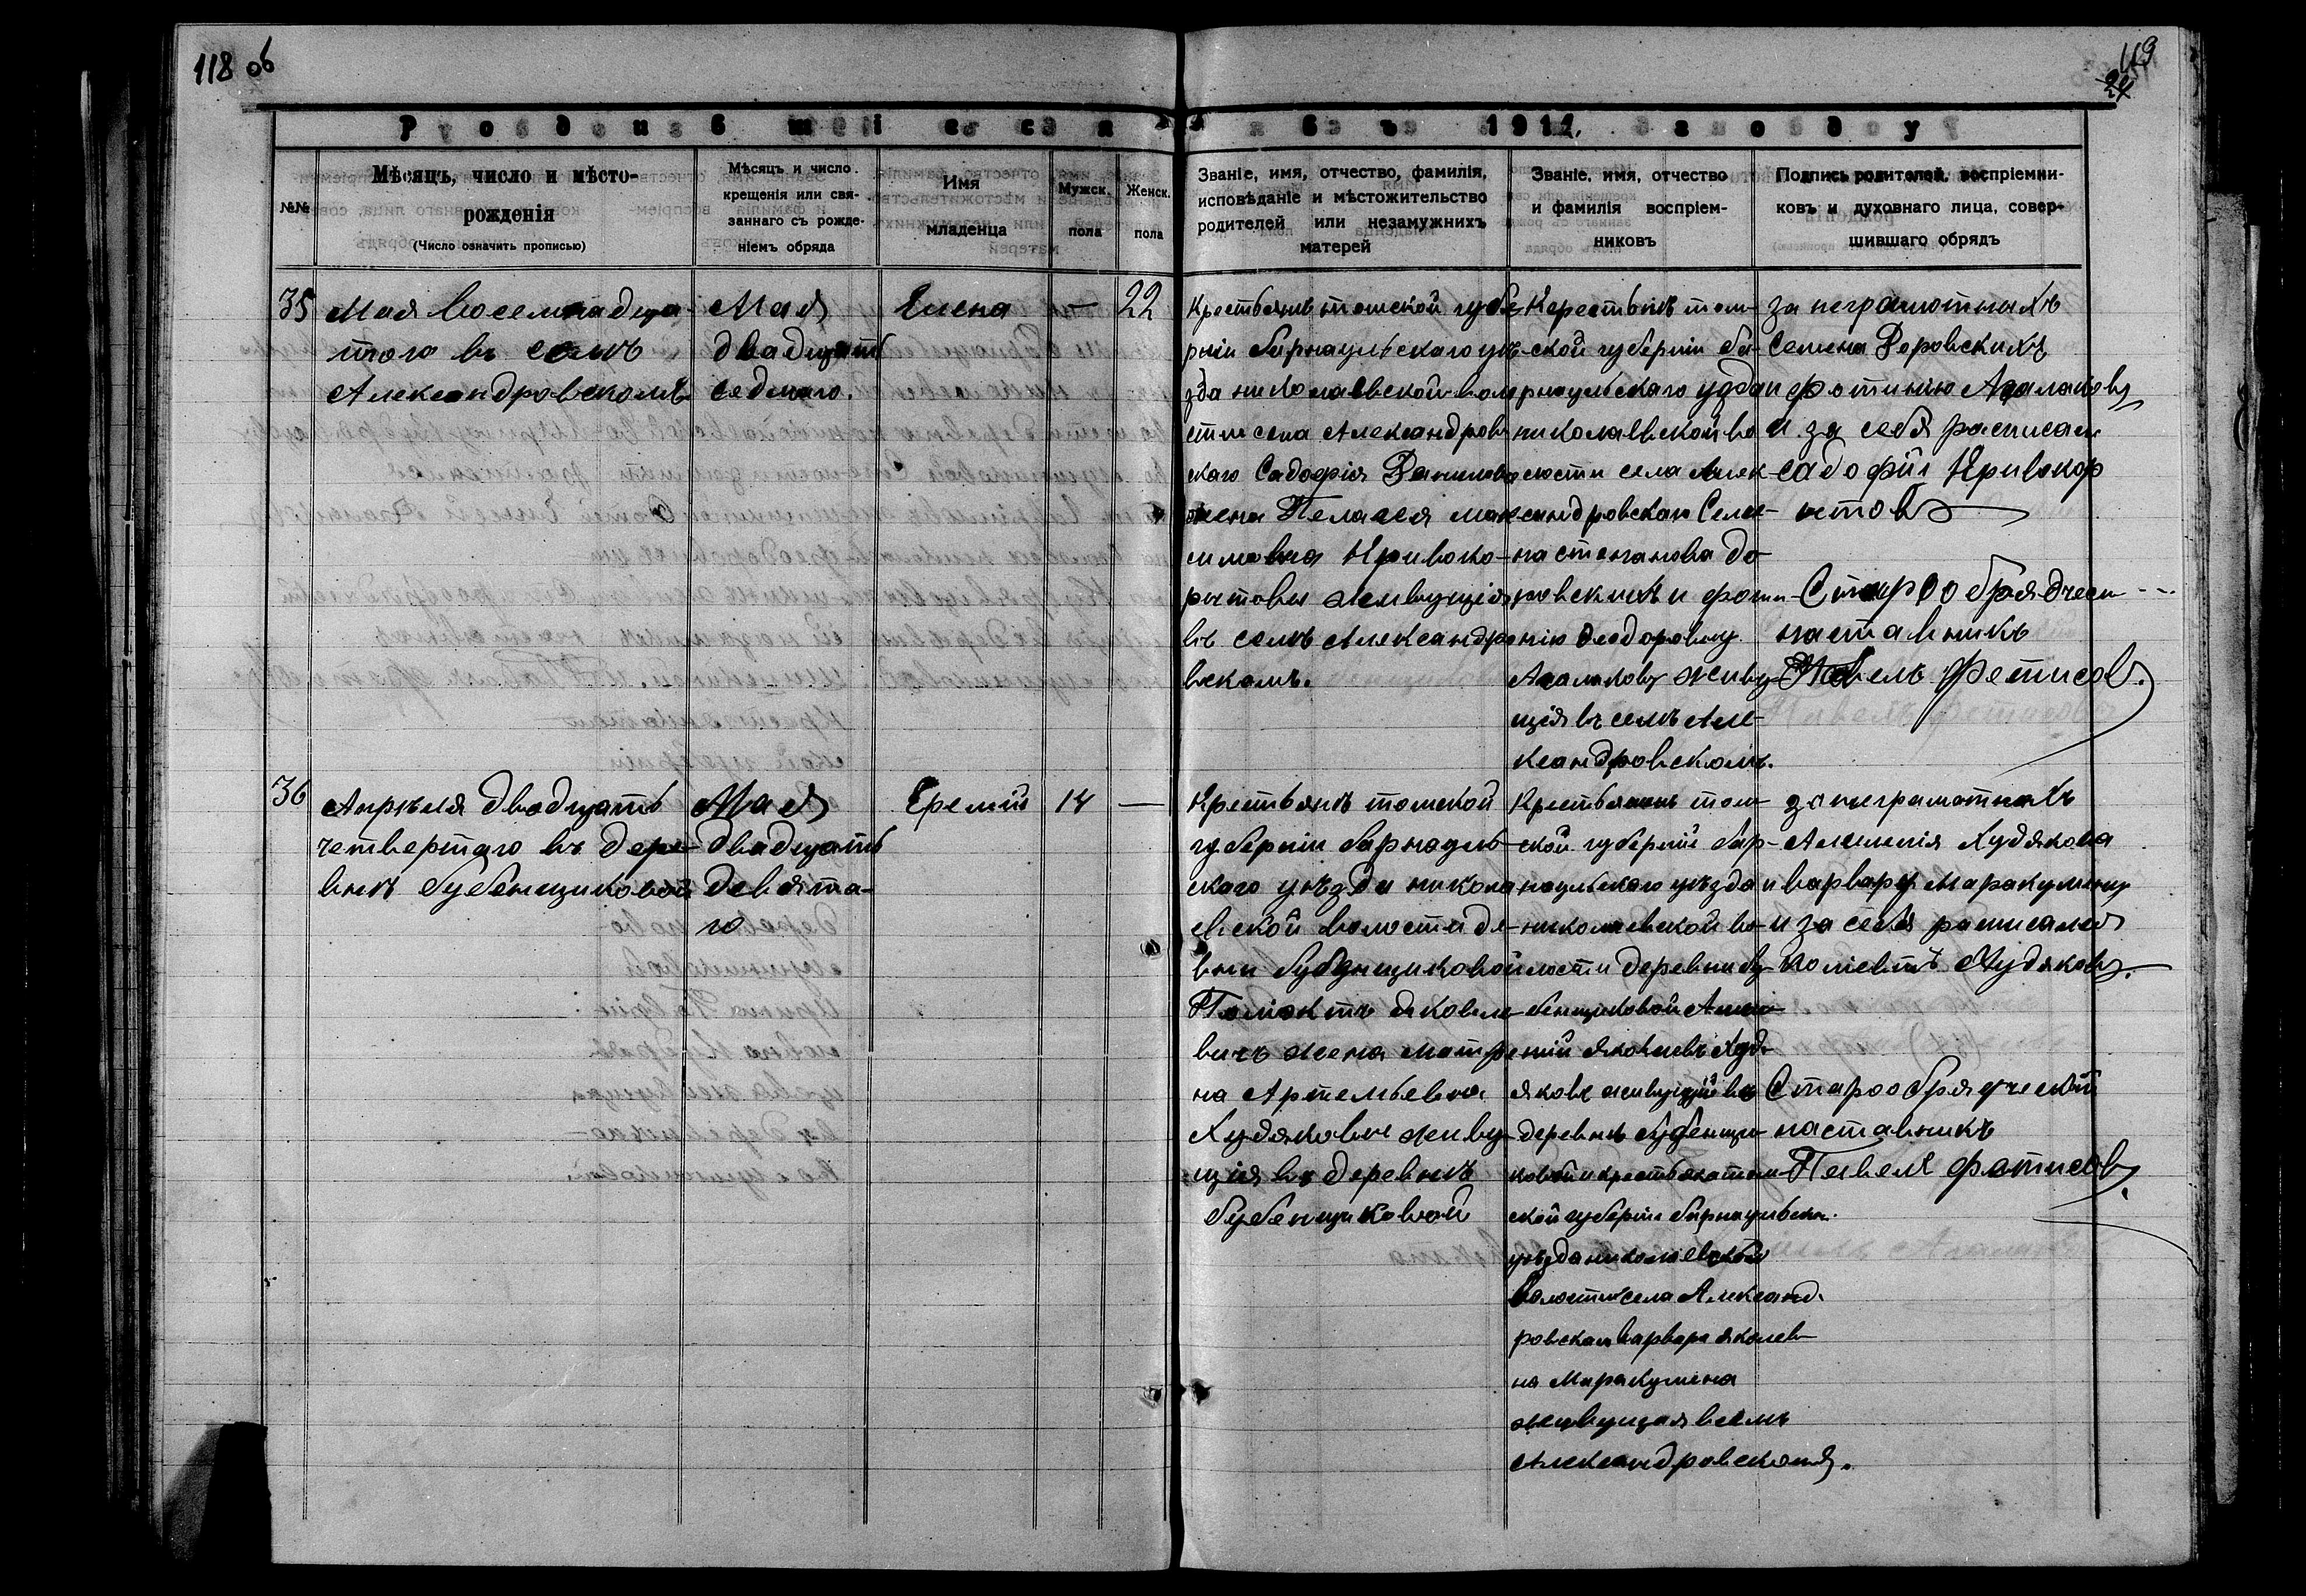 118 об
119
24
Родившіеся
въ 1911 году
№№
Мѣсяцъ, число и мѣсто-
рожденія
(Число означить прописью)
Мѣсяцъ и число
крещенія или свя-
заннаго съ рожде-
ніемъ обряда
Имя
младенца
Мужск.
пола
Женск.
пола
Званіе, имя, отчество, фамилія,
исповѣданіе и мѣстожительство
родителей или незамужнихъ
матерей
Званіе, имя, отчество
и фамилія воспріем-
никовъ
Подпись родителей, воспріемни-
ковъ и духовнаго лица, совер-
шившаго обрядъ
35
Мая восемнадца
того въ селѣ
Александровскомъ
Мая
двадцать
седмого.
Елена
—
22
Крестьянъ томской губе
рніи барнаульскаго уѣ
зда николаевской воло
сти села Александров
скаго Садофія Данилова
жена Пелагея мак
симовна Кривоко-
рытовы живущія
въ селѣ Александро
вскомъ.
Крестьянъ том-
ской губерніи ба-
рнаульскаго уѣзда
николаевской во
лости села Алек-
сандровскаго Семе-
на степанова До-
ровскихъ и фоти-
нію Феодоровну
Адамкову живу-
щія въ селѣ Але-
ксандровскомъ.
за неграмотныхъ
Семена Доровскихъ
и фотинію
и за себя расписал
садофій Кривокор
ытовъ
Старообрядчески
наставникъ
Павелъ Фетисов.
36
Апрѣля двадцать
четвертаго въ дере-
внѣ бубенщиковой
Мая
двадцать
девята-
го
Еремій
14
—
Крестьянъ томской
губерніи барнауль-
скаго уѣзда никола
евской волости де-
вни бубенщиковой
Поліэктъ яковле
вичъ жена матре
на Артемьевна
Худяковы живу-
щія въ деревнѣ
бубенщиковой
Крестьянинъ том-
ской губерніи бар-
наульскаго уѣзда
николаевской во-
лости деревни бу
бенщиковой
яковлевъ Худ-
яковъ живущій въ
деревнѣ бубенщи-
ковой и крестьянка том
ской губерніи барнаульска.
уѣзда николаевской
волости села Александ.
ровскаго варвара яковлев-
на Маракулина
живущая в селѣ
Александровскомъ.
за неграмотныхъ
Худякова
и варвару Маракулину
и за себя расписался
Худяковъ.
Старообрядческій
наставникъ
Павелъ Фетисовъ